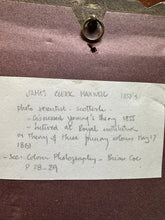 JAMES CLERK MAXWELL 1855 &
photo scientist - scotland
- Discussed Young's theory 1855
- lectured at Royal institution
on Theory of three primary colours May 17
1861
- See: Colour Photography - Brian Coe
P 28-29